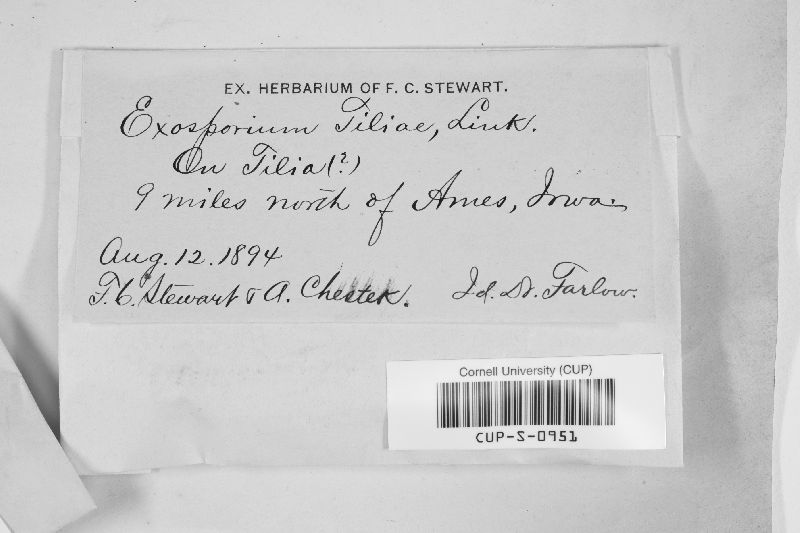 EX. HERBARIUM OF F. C. STEWART.
Exosporium Tiliae, Link.
On Tilia (?)
9 miles north of Ames, Iowa.
Aug. 12. 1894
F. C. Stewart & A. Chester. Id. Dr. Farlow.
Cornell University (CUP)
CUP-S-0951